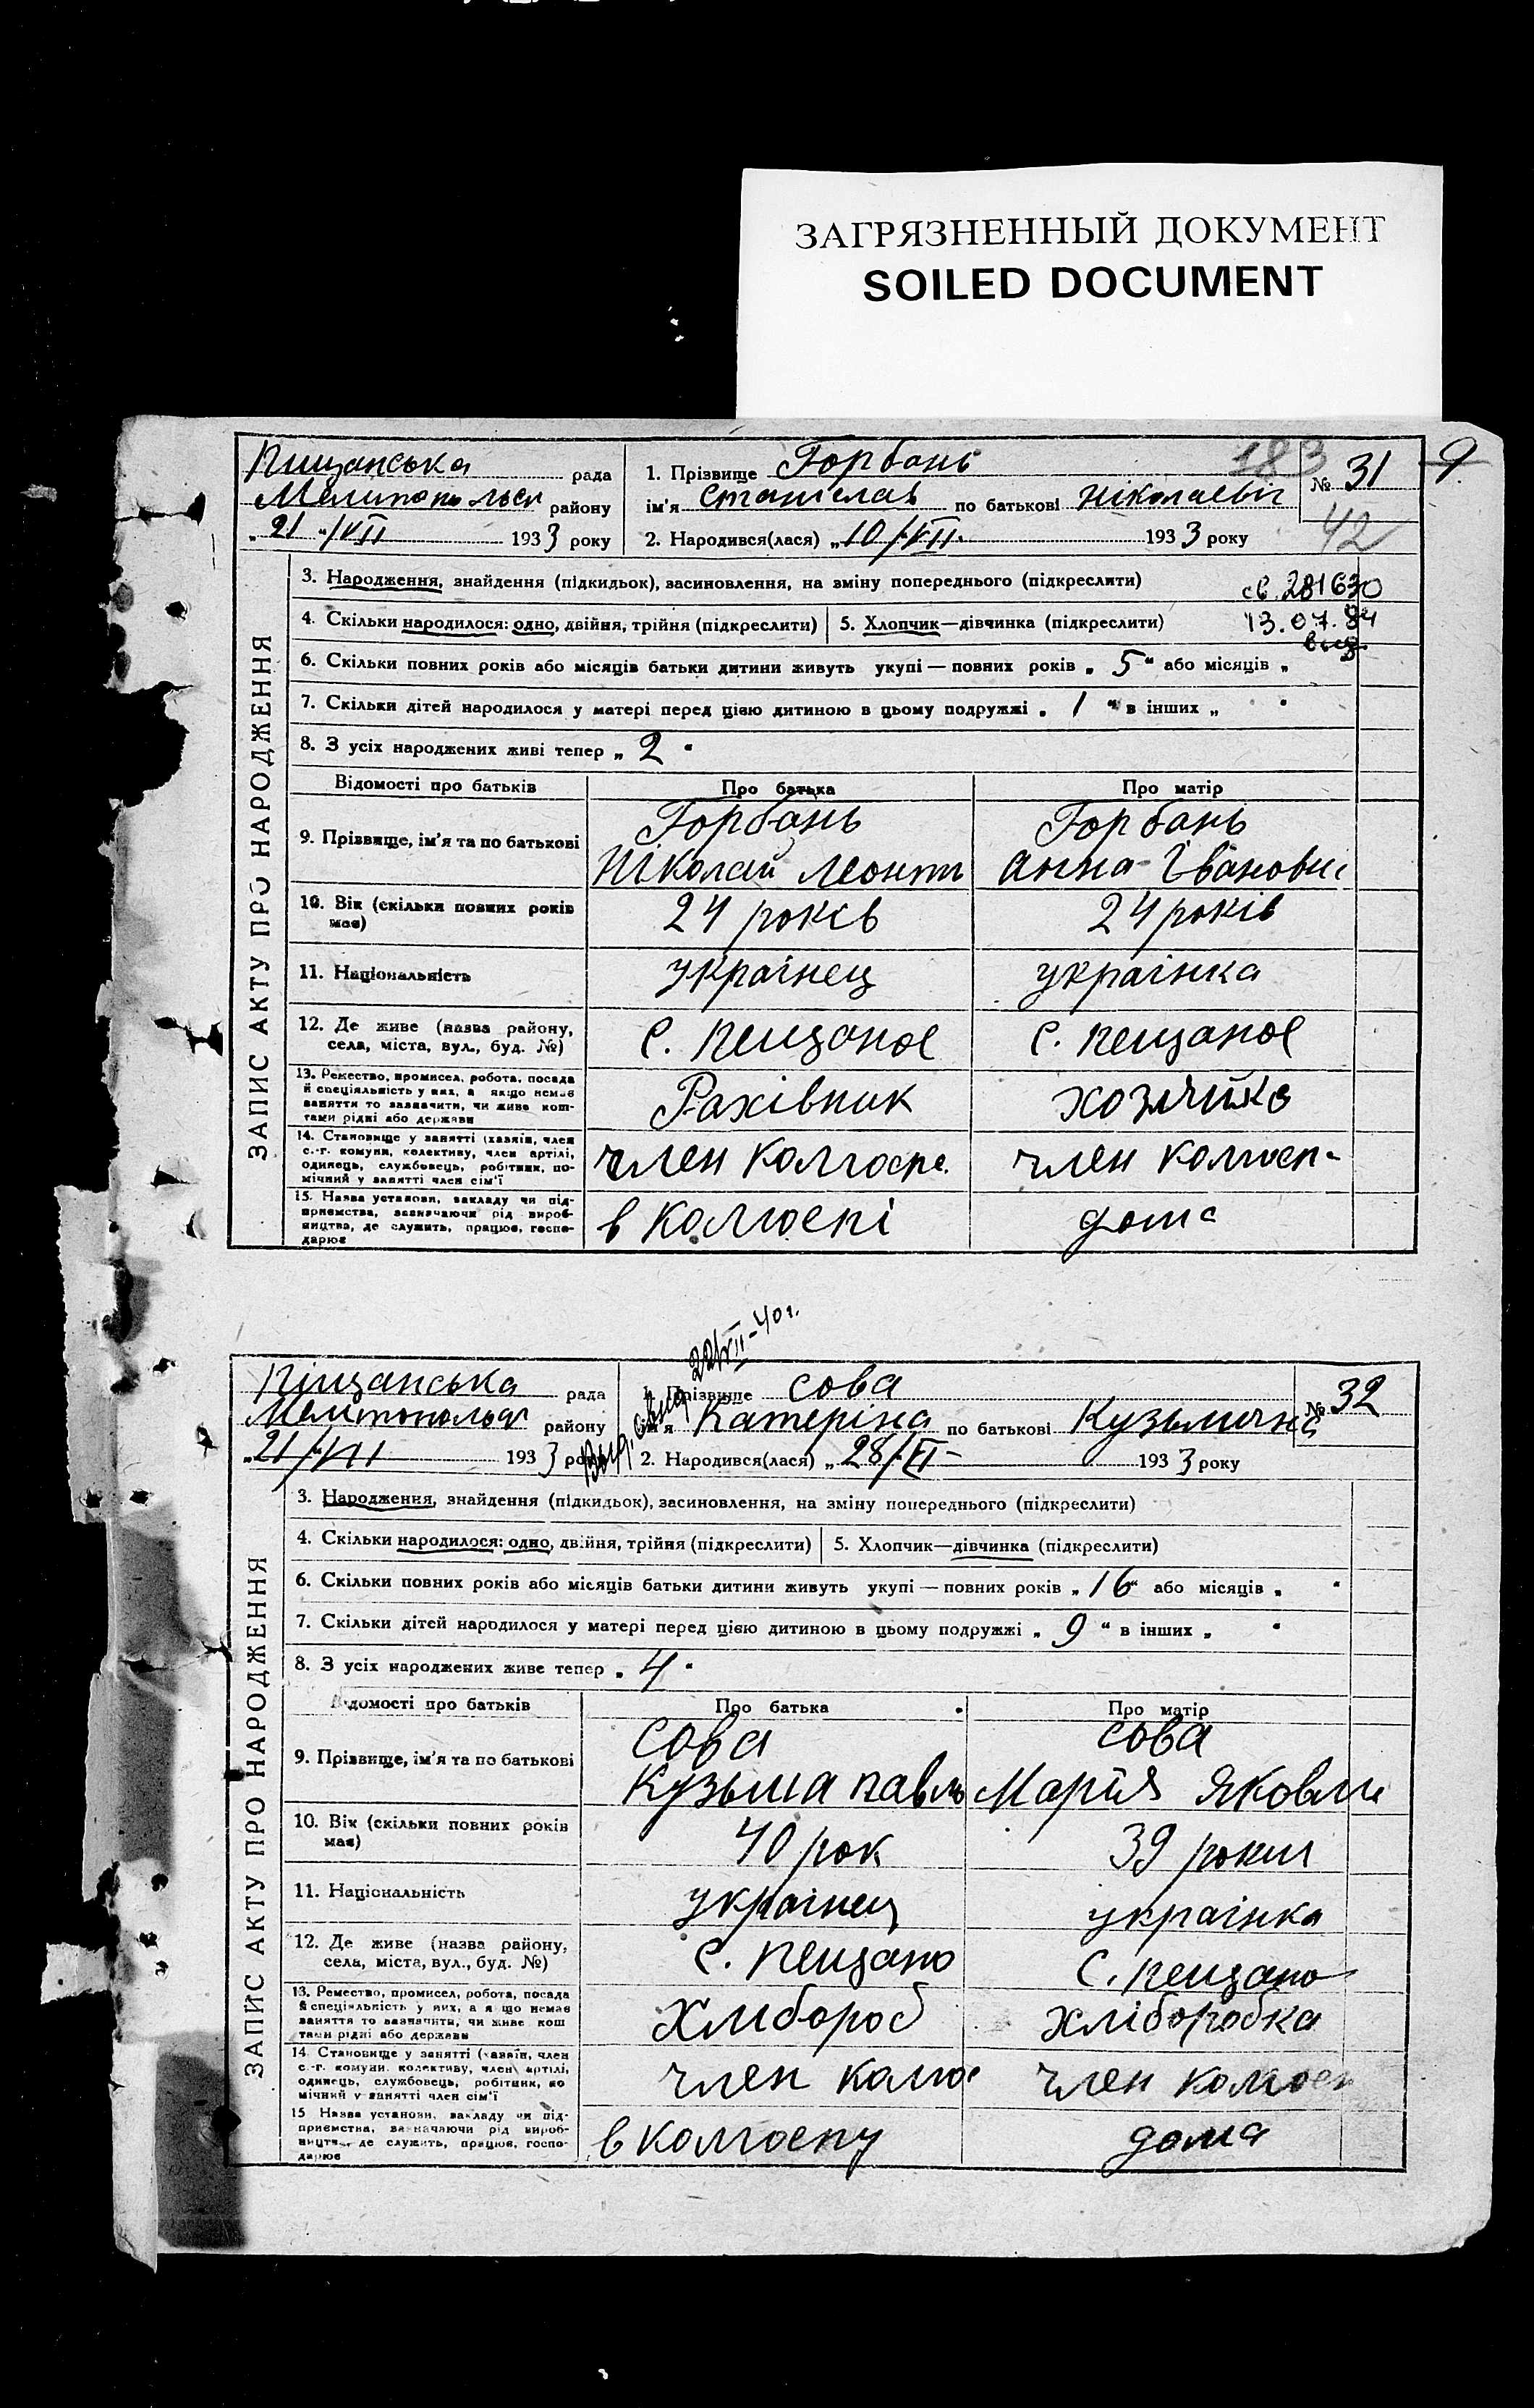 ЗАГРЯЗНЕННЫЙ ДОКУМЕНТ
SOILED DOCUMENT
9.
183
Пищанська рада
Мелитопольск району
„21 "/VII 1933 року
1. Прізвище Горбань
ім'я Станіслав по батькові Ніколаевіч
2. Народився(лася) „10/VII. 1933 року
№ 31
42
ЗАПИС АКТУ ПРО НАРОДЖЕННЯ
3. Народження, знайдення (підкидьок), засиновлення, на зміну попереднього (підкреслити)
св. 281630
4. Скільки народилося: одно, двійня, трійня (підкреслити) 5. Хлопчик—дівчинка (підкреслити)
13.07.84
6. Скільки повних років або місяців батьки дитини живуть укупі — повних років „ 5 " або місяців „
7. Скільки дітей народилося у матері перед цією дитиною в цьому подружжі „ 1 " в інших „ "
8. З усіх народжених живі тепер „ 2 "
Відомості про батьків Про батька Про матір
9. Прізвище, ім'я та по батькові
Горбань Горбань
Ніколай Леонт Анна Івановн
10. Вік (скільки повних років має) 24 років 24 років
11. Національність украінец украінка
12. Де живе (назва району, села, міста, вул., буд. №) С. Пещаное С. Пещаное
13. Ремество, промисел, робота, посада
й спеціяльність у них, а якщо немає
заняття то зазначити, чи живе кош-
тами рідні або держави
Рахівник хозяйка
14. Становище у занятті (хазяїн, член
с.-г. комуни, колективу, член артілі,
одинець, службовець, робітник, по-
мічний у занятті член сім'ї
член колгосп. член колгосп-
15. Назва установи, закладу чи під-
приємства, зазначаючи рід вироб-
ництва, де служить, працює, госпо-
дарює
в колгоспі дома
22/VII-40 г.
Піщанська рада
Мелитопольск району
„21/VII 1933 року
1. Прізвище Сова
ім'я Катеріна по батькові Кузьмична
2. Народився(лася) „28/VI- 1933 року
№ 32
ЗАПИС АКТУ ПРО НАРОДЖЕННЯ
3. Народження, знайдення (підкидьок), засиновлення, на зміну попереднього (підкреслити)
4. Скільки народилося: одно, двійня, трійня (підкреслити) 5. Хлопчик—дівчинка (підкреслити)
6. Скільки повних років або місяців батьки дитини живуть укупі — повних років „ 16 " або місяців „ "
7. Скільки дітей народилося у матері перед цією дитиною в цьому подружжі „ 9 " в інших „ "
8. З усіх народжених живе тепер „ 4 "
Відомості про батьків Про батька Про матір
9. Прізвище, ім'я та по батькові
Сова Сова
Кузьма Павло Мария Яковл
10. Вік (скільки повних років має) 40 рок 39 роки
11. Національність украінец украінка
12. Де живе (назва району, села, міста, вул., буд. №) С. Пещано С. Пещано
13. Ремество, промисел, робота, посада
й спеціяльність у них, а якщо немає
заняття то зазначити, чи живе кош
тами рідні або держави
Хлібороб хліборобка
14. Становище у занятті (хазяїн, член
с.-г. комуни, колективу, член артілі,
одинець, службовець, робітник, по
мічний у занятті член сім'ї
член колгос член колгосп
15 Назва установи, закладу чи під-
приємства, зазначаючи рід вироб-
ництва, де служить, працює, госпо-
дарює
в колгоспу дома